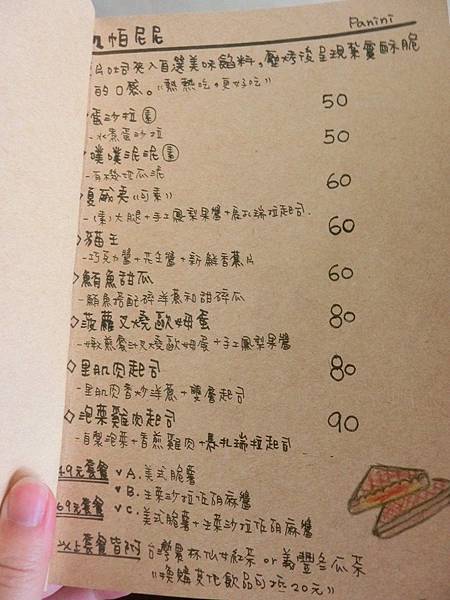 帕尼尼 Panini
片吐司夾入自選美味餡料，壓烤後呈現紮實酥脆
的口感。"熱熱吃，更好吃"
蛋沙拉 素 50
-水煮蛋沙拉
噗噗泥泥 素 50
-有機地瓜泥
夏威夷(可素) 60
-(素)火腿+手工鳳梨果醬+馬扎瑞拉起司
◇貓王 60
-巧克力醬+花生醬+新鮮香蕉片
◇鮪魚甜瓜 60
-鮪魚搭配碎洋蔥和甜碎瓜
◇菠蘿叉燒歐姆蛋 80
-嫩煎蜜汁叉燒歐姆蛋+手工鳳梨果醬
◇里肌肉起司 80
-里肌肉香炒洋蔥+雙層起司
◇泡菜雞肉起司 90
-自製泡菜+香煎雞肉+馬扎瑞拉起司
49元套餐 ∨A.美式脆薯
∨B.生菜沙拉佐胡麻醬
69元套餐 ∨C.美式脆薯+生菜沙拉佐胡麻醬
以上套餐皆附 台灣農林仙女紅茶 or 義豐冬瓜茶
"換購其他飲品可抵20元"